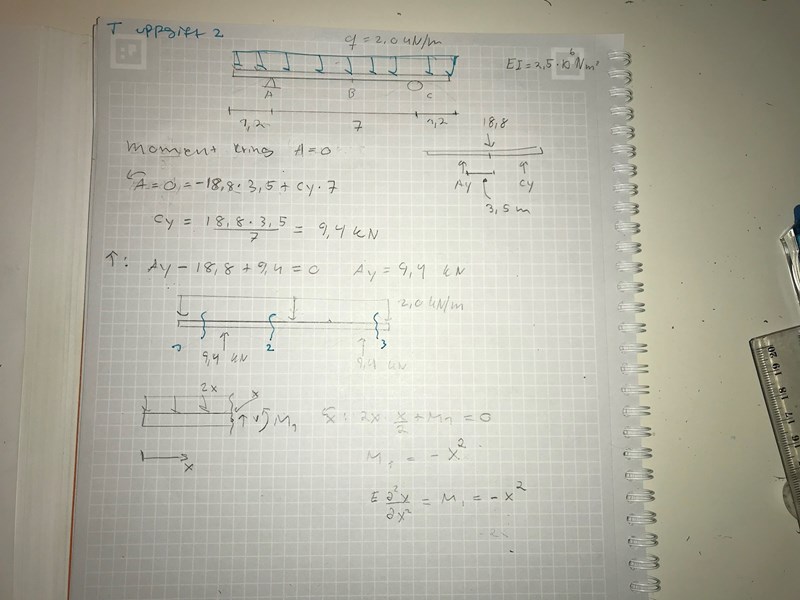 T uppgift 2
q = 2,0 kN/m
EI = 2,5 · 10⁶ Nm²
A B C
1,2 7 1,2
moment kring A=0
18,8
Ay Cy
3,5 m
A = 0 = -18,8 · 3,5 + Cy · 7
Cy = 18,8 · 3,5 / 7 = 9,4 kN
↑: Ay - 18,8 + 9,4 = 0 Ay = 9,4 kN
2,0 kN/m
1 2 3
9,4 kN 9,4 kN
2x x
↑ V M₁ x: 2x · x/2 + M₁ = 0
x
M₁ = - x²
E ∂²x/∂x² = M₁ = - x²